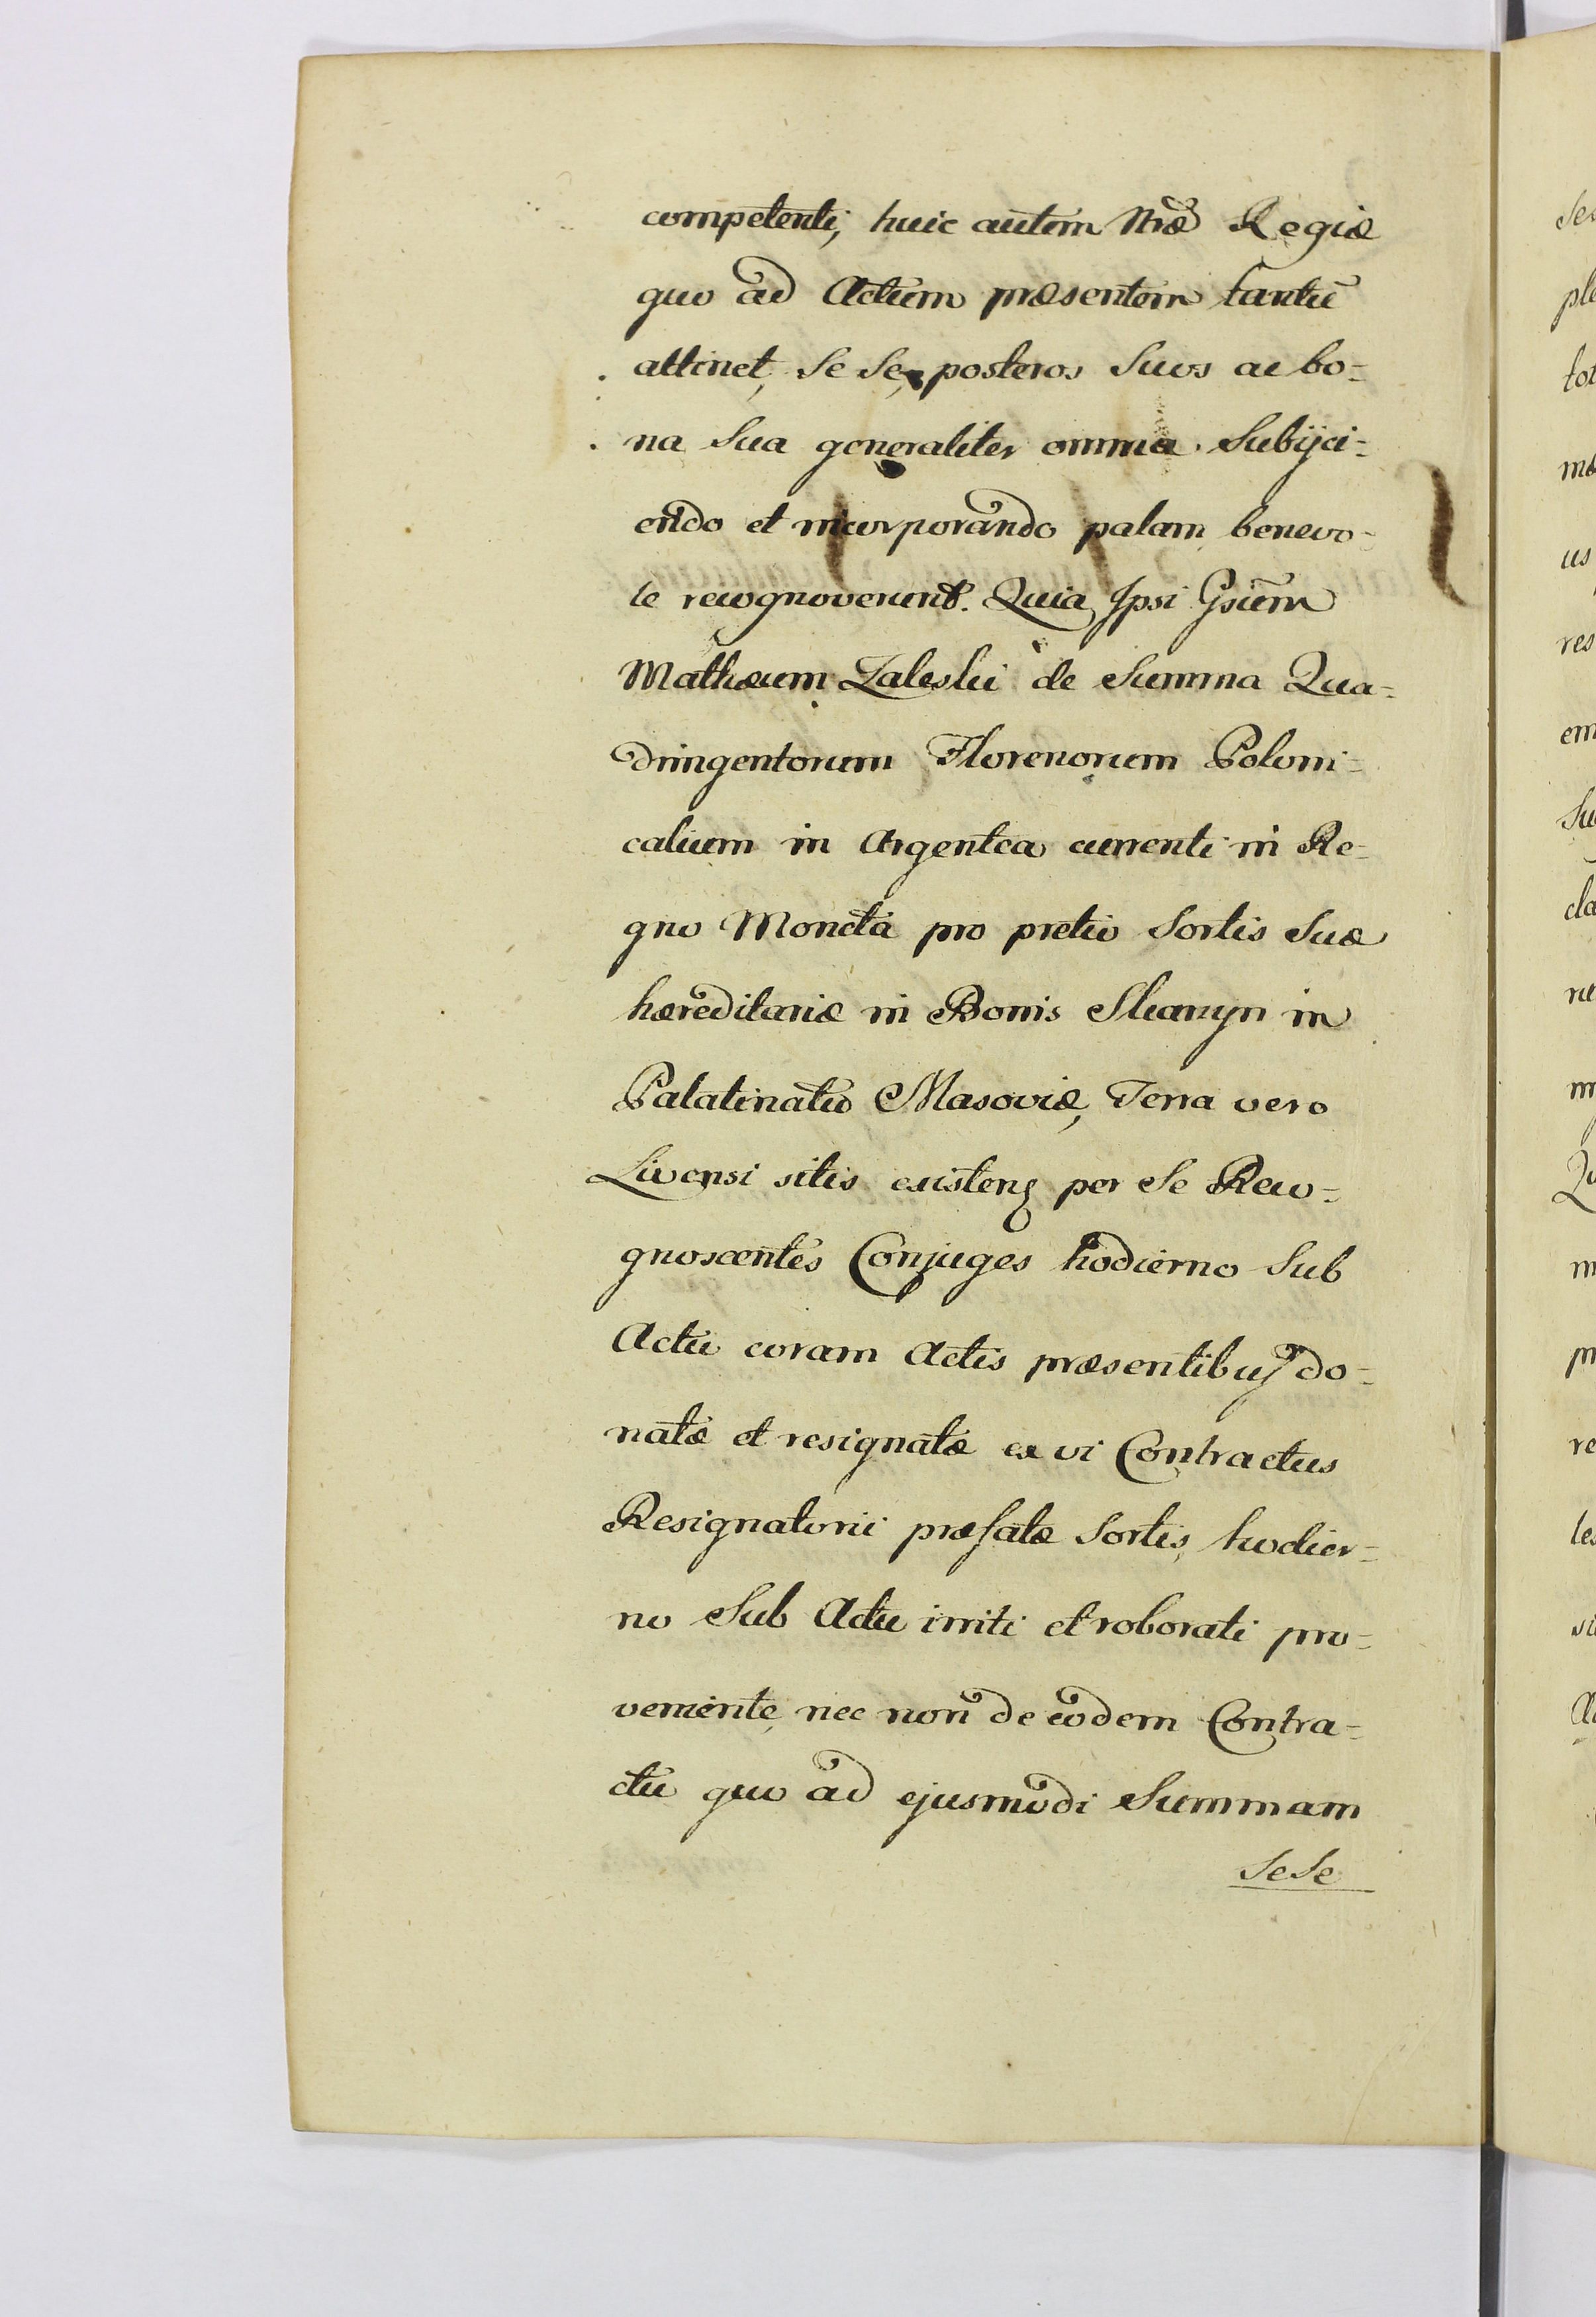 competenti, huic autem Nræ Regiæ
quo ad Actum præsentem tantū
attinet, se se, posteros suos ac bo=
na sua generaliter omnia subijci=
endo et incorporando palam benevo=
le recognoverunt. Quia Ipsi Gsūm
Mathæum Zaleski de Summa Qua=
dringentorum Florenorum Poloni=
calium in Argentea currenti in Re=
gno Moneta pro pretio Sortis suæ
hæreditariæ in Bonis Skaryn in
Palatinatu Masoviæ, Terra vero
Livensi sitis existenȩ per se Reco=
gnoscentes Conjuges hodierno sub
Actu coram Actis præsentibus do=
natæ et resignatæ ex vi Contractus
Resignatorii præfatæ Sortis, hodier=
no sub Actu initi et roborati pro=
veniente, nec non de eodem Contra=
ctu quo ad ejusmodi Summam
sese